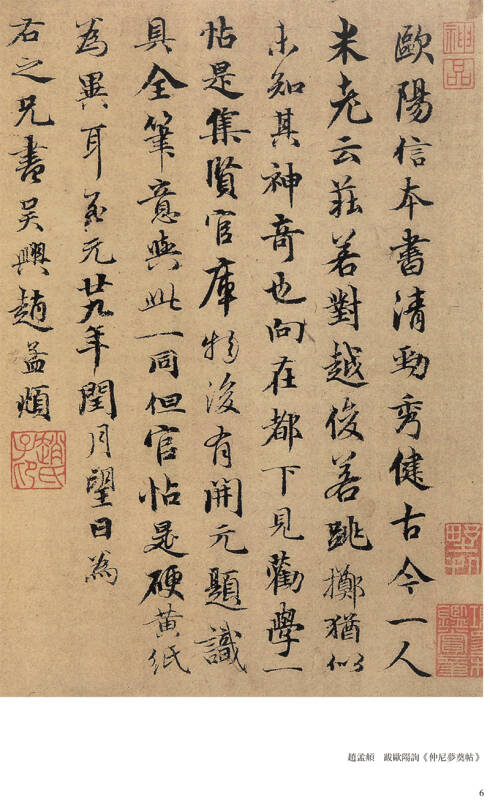 歐陽信本書清勁秀健古今一人
米老云莊若對越俊若跳擲猶似
未知其神奇也向在都下見勸學一
帖是集賢官庫物後有開元題識
具全筆意與此一同但官帖是硬黃紙
為異耳至元廿九年閏月望日為
右之兄書吳興趙孟頫
趙氏子昂
神品
趙孟頫　跋歐陽詢《仲尼夢奠帖》
6